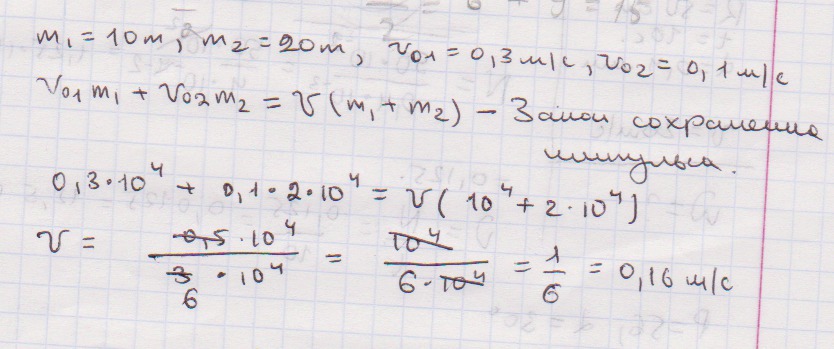 m₁ = 10т, m₂ = 20т, v₀₁ = 0,3 м/с, v₀₂ = 0,1 м/с
v₀₁m₁ + v₀₂m₂ = v(m₁ + m₂) – Закон сохранения
импульса.
0,3·10⁴ + 0,1·2·10⁴ = v(10⁴ + 2·10⁴)
v = 0,5·10⁴ / 3 6 ·10⁴ = 10⁴ / 6·10⁴ = 1/6 = 0,16 м/с